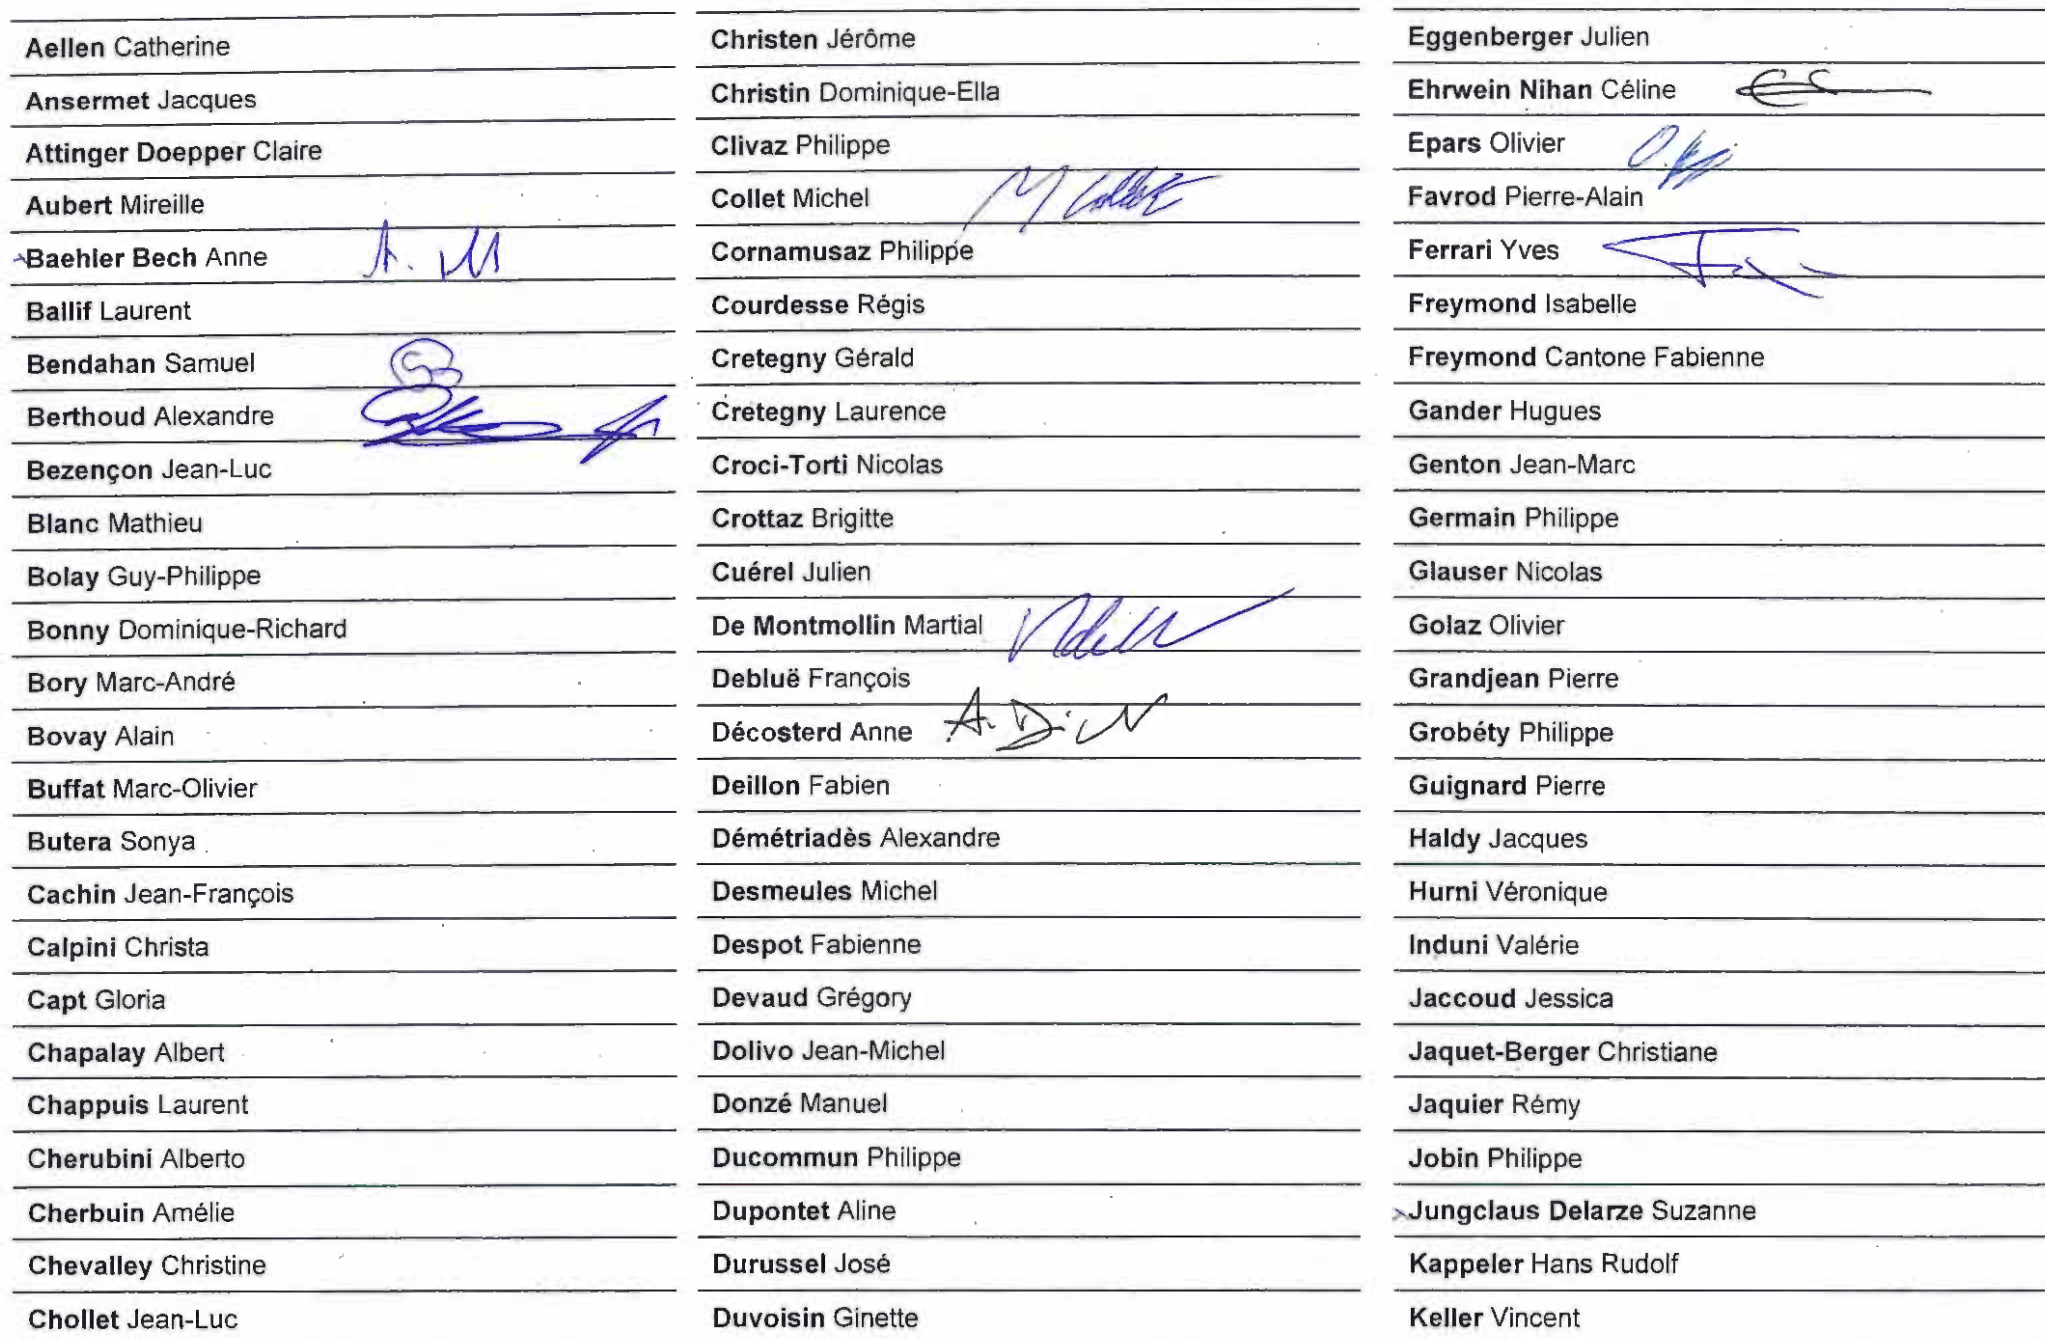 Aellen Catherine
Ansermet Jacques
Attinger Doepper Claire
Aubert Mireille
Baehler Bech Anne
Ballif Laurent
Bendahan Samuel
Berthoud Alexandre
Bezençon Jean-Luc
Blanc Mathieu
Bolay Guy-Philippe
Bonny Dominique-Richard
Bory Marc-André
Bovay Alain
Buffat Marc-Olivier
Butera Sonya
Cachin Jean-François
Calpini Christa
Capt Gloria
Chapalay Albert
Chappuis Laurent
Cherubini Alberto
Cherbuin Amélie
Chevalley Christine
Chollet Jean-Luc
Christen Jérôme
Christin Dominique-Ella
Clivaz Philippe
Collet Michel M Collet
Cornamusaz Philippe
Courdesse Régis
Cretegny Gérald
Cretegny Laurence
Croci-Torti Nicolas
Crottaz Brigitte
Cuérel Julien
De Montmollin Martial
Debluë François
Décosterd Anne
Deillon Fabien
Démétriadès Alexandre
Desmeules Michel
Despot Fabienne
Devaud Grégory
Dolivo Jean-Michel
Donzé Manuel
Ducommun Philippe
Dupontet Aline
Durussel José
Duvoisin Ginette
Eggenberger Julien
Ehrwein Nihan Céline
Epars Olivier
Favrod Pierre-Alain
Ferrari Yves
Freymond Isabelle
Freymond Cantone Fabienne
Gander Hugues
Genton Jean-Marc
Germain Philippe
Glauser Nicolas
Golaz Olivier
Grandjean Pierre
Grobéty Philippe
Guignard Pierre
Haldy Jacques
Hurni Véronique
Induni Valérie
Jaccoud Jessica
Jaquet-Berger Christiane
Jaquier Rémy
Jobin Philippe
Jungclaus Delarze Suzanne
Kappeler Hans Rudolf
Keller Vincent